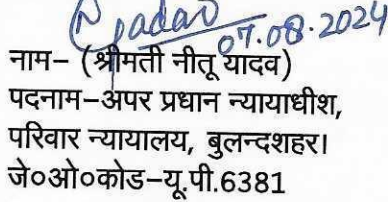 N Yadav
07.08.2024
नाम– (श्रीमती नीतू यादव)
पदनाम–अपर प्रधान न्यायाधीश,
परिवार न्यायालय, बुलन्दशहर।
जे०ओ०कोड–यू.पी.6381